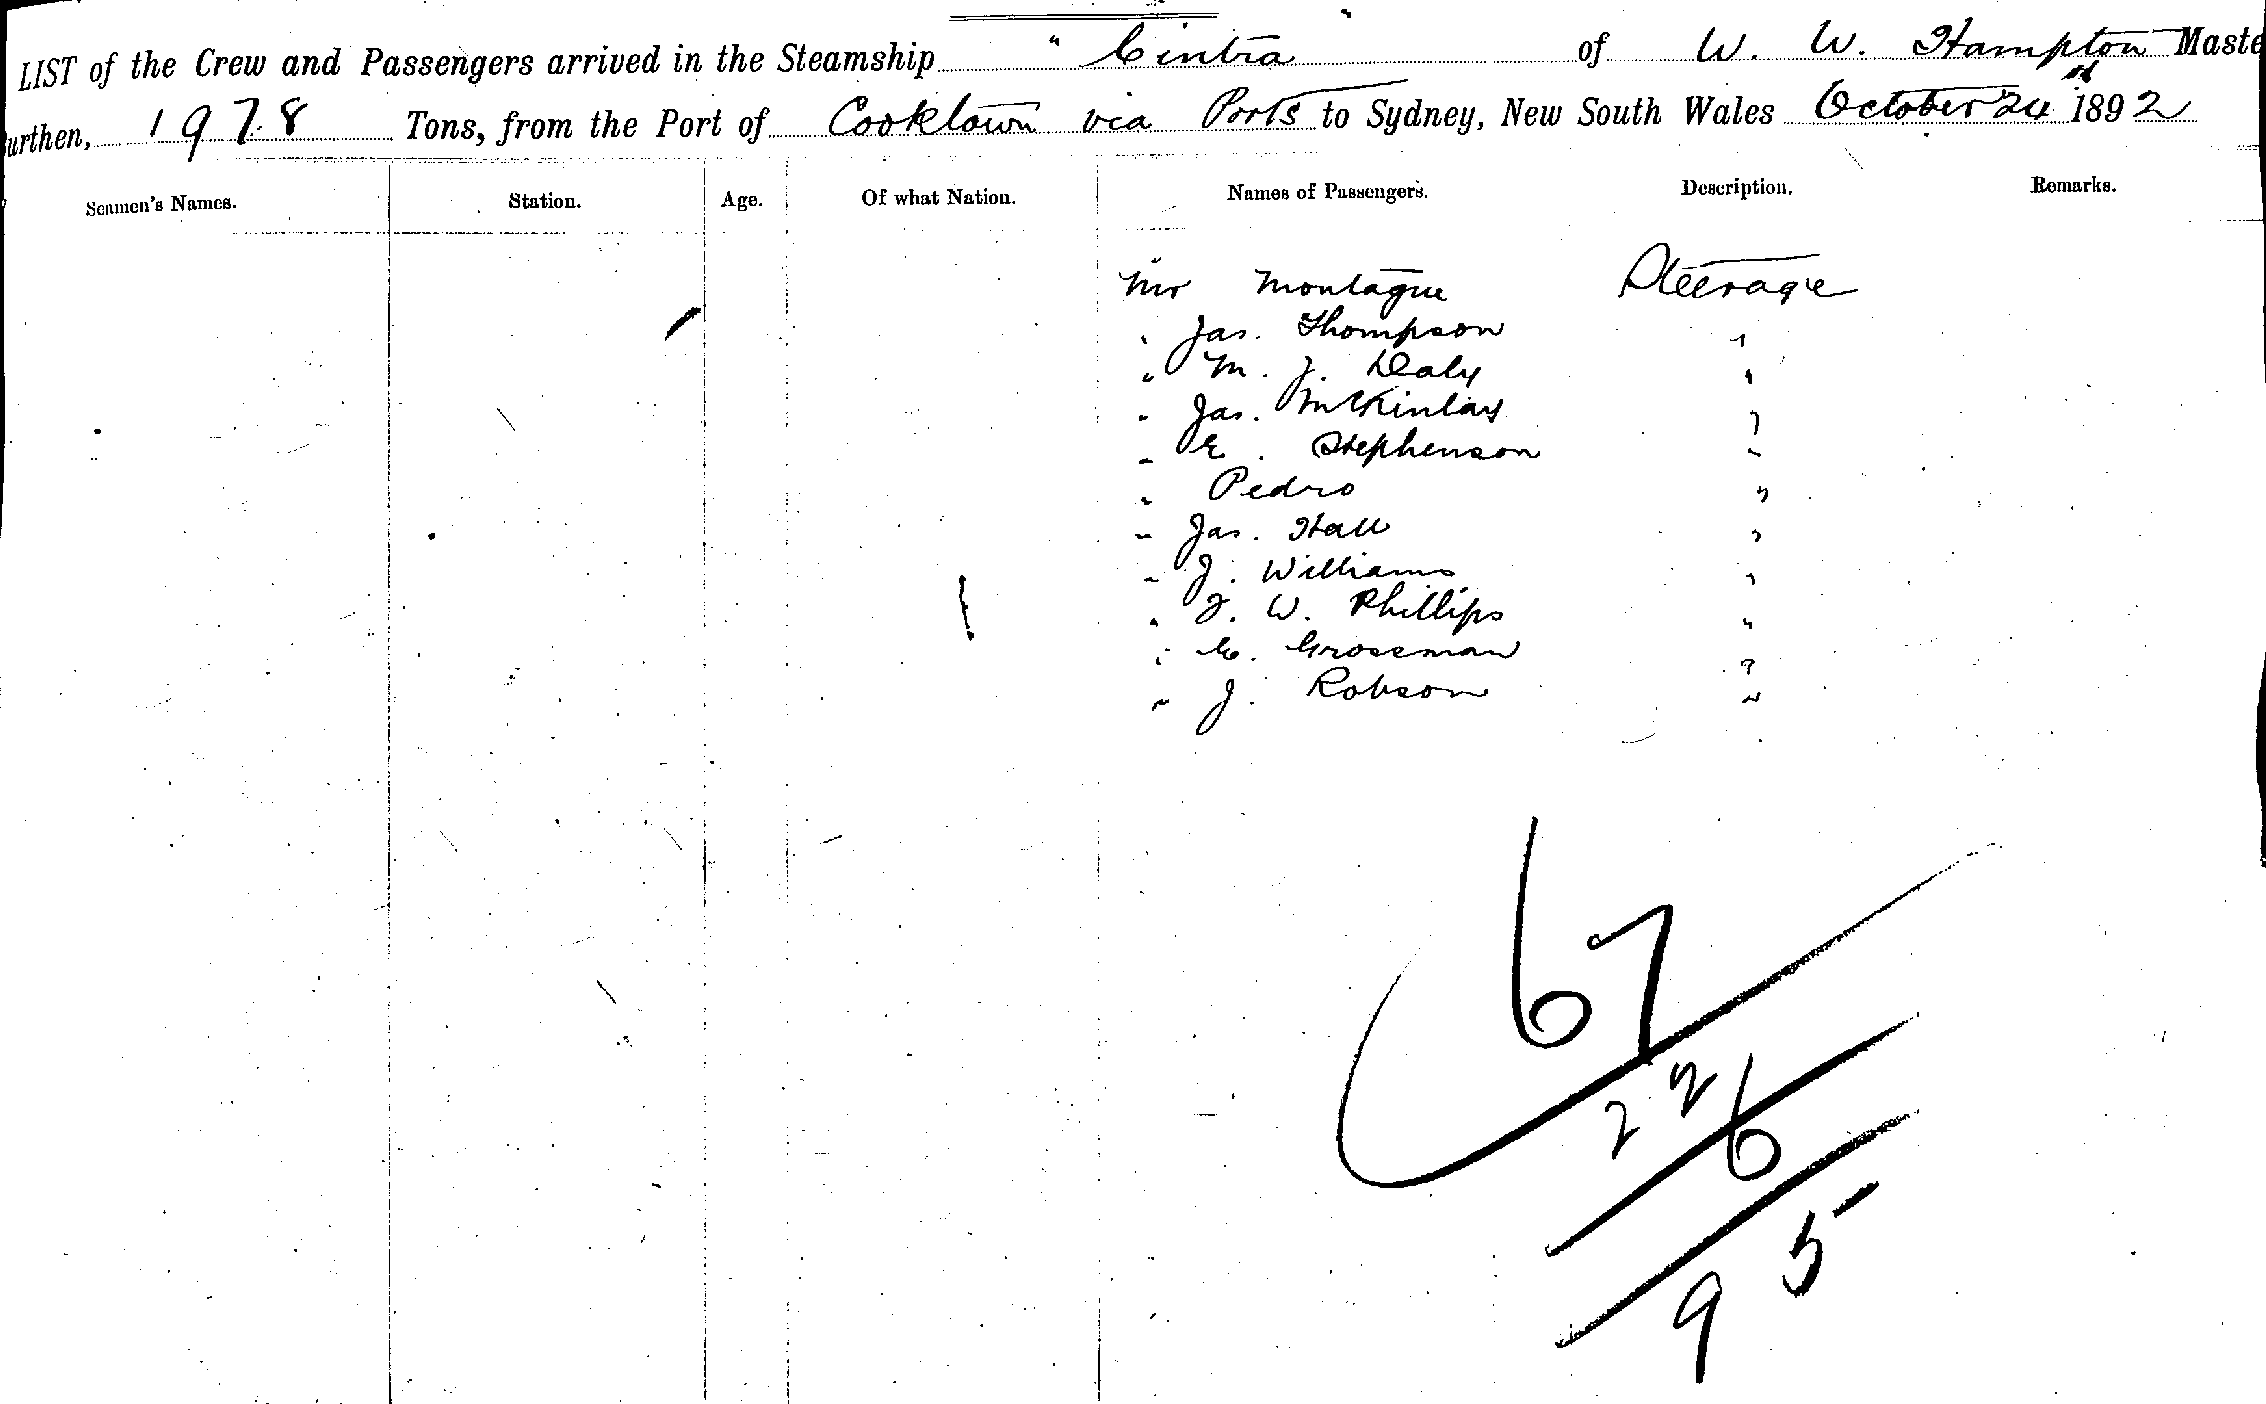 LIST of the Crew and Passengers arrived in the Steamship "Cintra" of W. W. Hampton Maste
urthen, 1978 Tons, from the Port of Cooktown via Ports to Sydney, New South Wales October 24 1892
Seamen's Names. Station. Age. Of what Nation. Names of Passengers. Description. Remarks.
Mr Montague Steerage
" Jas. Thompson "
" M. J. Daly "
" Jas. McKinlay "
" E. Stephenson "
" Pedro "
" Jas. Hall "
" J. Williams "
" J. W. Phillips "
" E. Grossman "
" J. Robson "
67
22
6
95